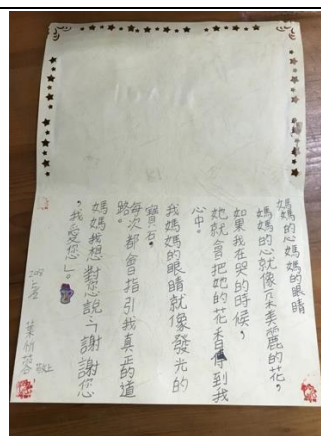 媽媽的心媽媽的眼睛
媽媽的心就像朵美麗的花，
如果我在哭的時候，
她就會把她的花香傳到我
心中。
我媽媽的眼睛就像發光的
寶石。
每次都會指引我真正的道
路。
媽媽我想對您說：謝謝您
，我愛您」。
葉
敬上